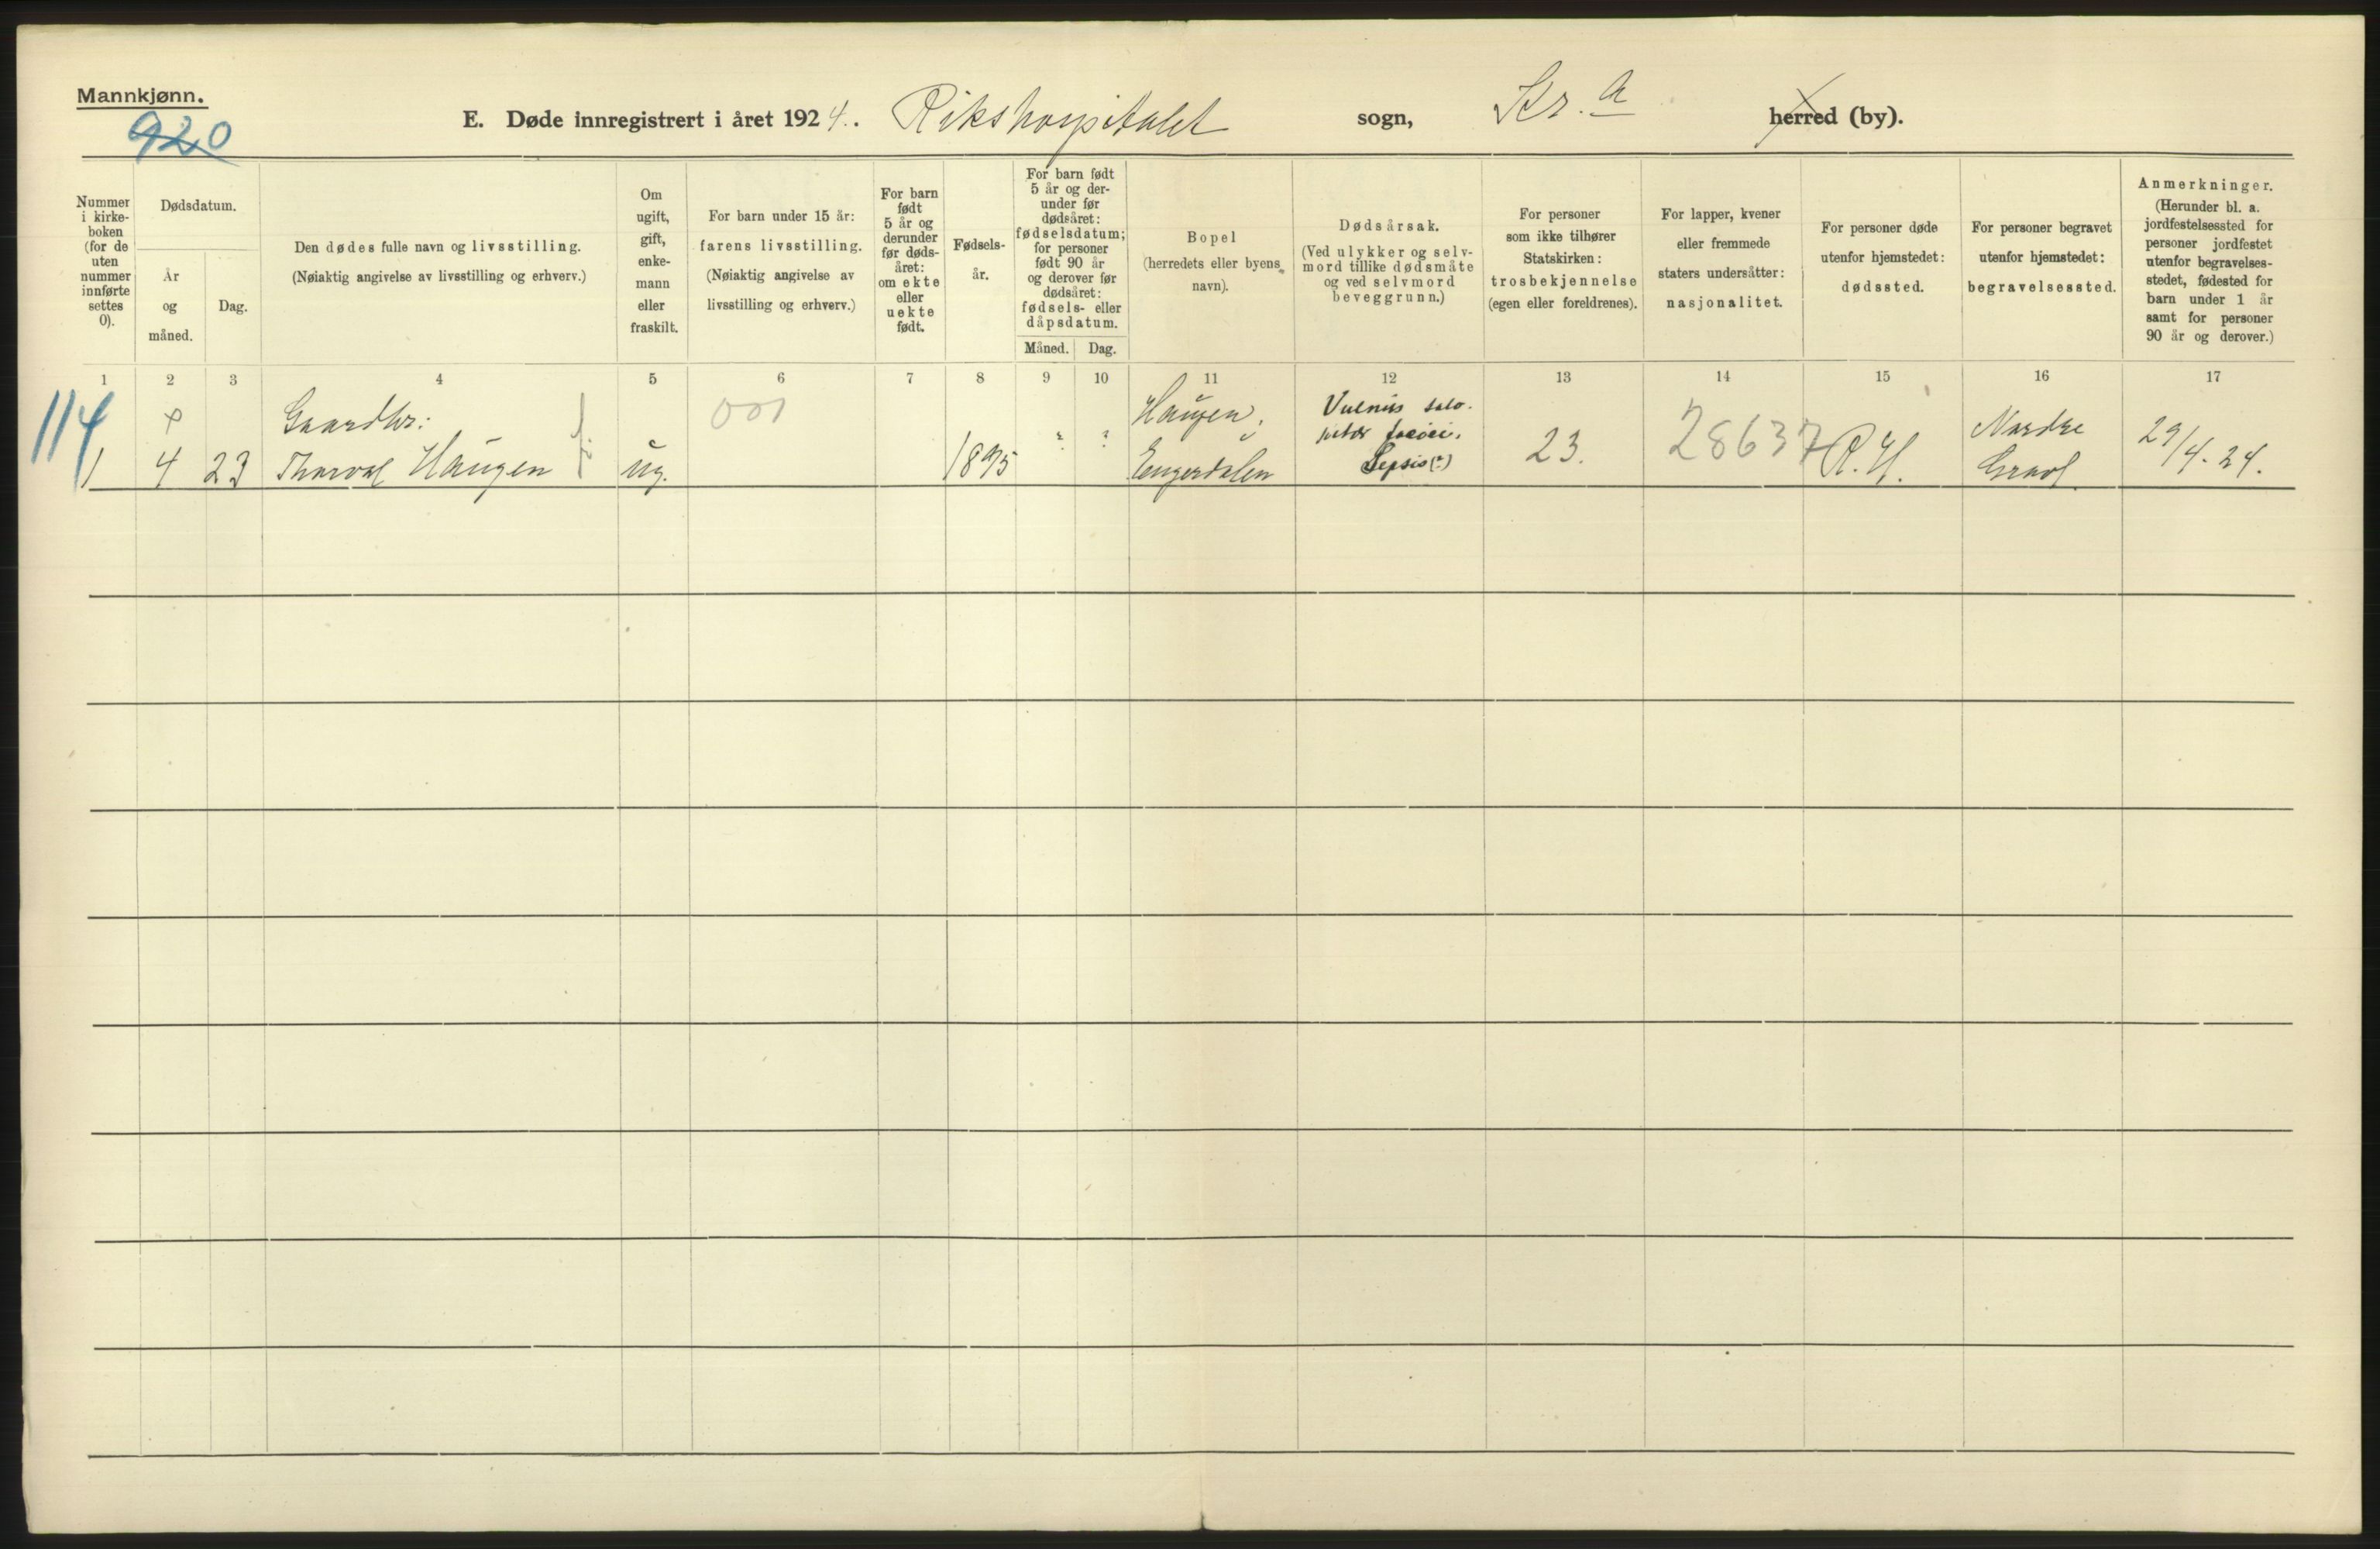 Mannkjønn.
920
E. Døde innregistrert i året 1924. Rikshospitalet sogn, Kr.a herred (by).
Nummer
i kirke-
boken
(for de
uten
nummer
innførte
settes
0).
Dødsdatum.
År
og
måned.
Dag.
Den dødes fulle navn og livsstilling.
(Nøiaktig angivelse av livsstilling og erhverv.)
Om
ugift,
gift,
enke-
mann
eller
fraskilt.
For barn under 15 år:
farens livsstilling.
(Nøiaktig angivelse av
livsstilling og erhverv.)
For barn
født
5 år og
derunder
før døds-
året:
om ekte
eller
uekte
født.
Fødsels-
år.
For barn født
5 år og der-
under før
dødsåret:
fødselsdatum;
for personer
født 90 år
og derover før
dødsåret:
fødsels- eller
dåpsdatum.
Måned. Dag.
Bopel
(herredets eller byens
navn).
Dødsårsak.
(Ved ulykker og selv-
mord tillike dødsmåte
og ved selvmord
beveggrunn.)
For personer
som ikke tilhører
Statskirken:
trosbekjennelse
(egen eller foreldrenes).
For lapper, kvener
eller fremmede
staters undersåtter:
nasjonalitet.
For personer døde
utenfor hjemstedet:
dødssted.
For personer begravet
utenfor hjemstedet:
begravelsessted.
Anmerkninger.
(Herunder bl. a.
jordfestelsessted for
personer jordfestet
utenfor begravelses-
stedet, fødested for
barn under 1 år
samt for personer
90 år og derover.)
1 2 3 4 5 6 7 8 9 10 11 12 13 14 15 16 17
114
1
4 23
Gaardbr:
Thorval Haugen
ug.
001
1895
? ?
Haugen,
Engerdalen
Vulnus
Sepsis (?)
23.
28637
R.H.
Nordre
Gravl
29/4-24.